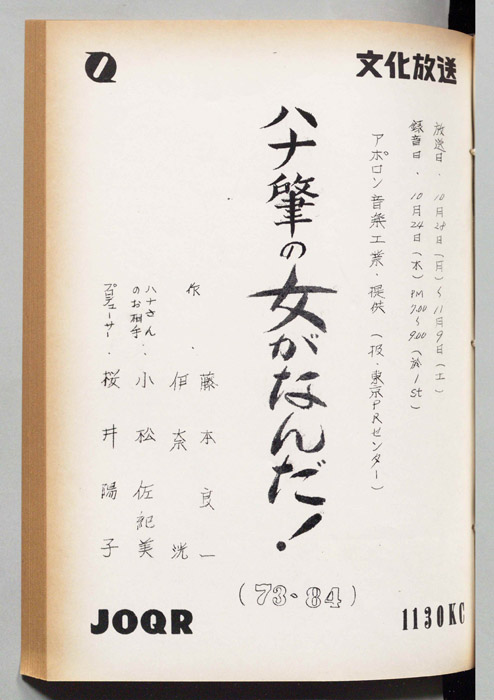 文化放送
放送日. 10月28日(月)〜11月9日(土)
録音日. 10月24日(木) PM 7.00〜9.00 (於 1 St)
アポロン音楽工業・提供 (扱・東京PRセンター)
ハナ肇の女がなんだ!
(73・84)
作. 藤本良一
伯奈洸
ハナさんのお相手. 小松佐紀美
プロデューサー. 桜井陽子
JOQR
1130KC